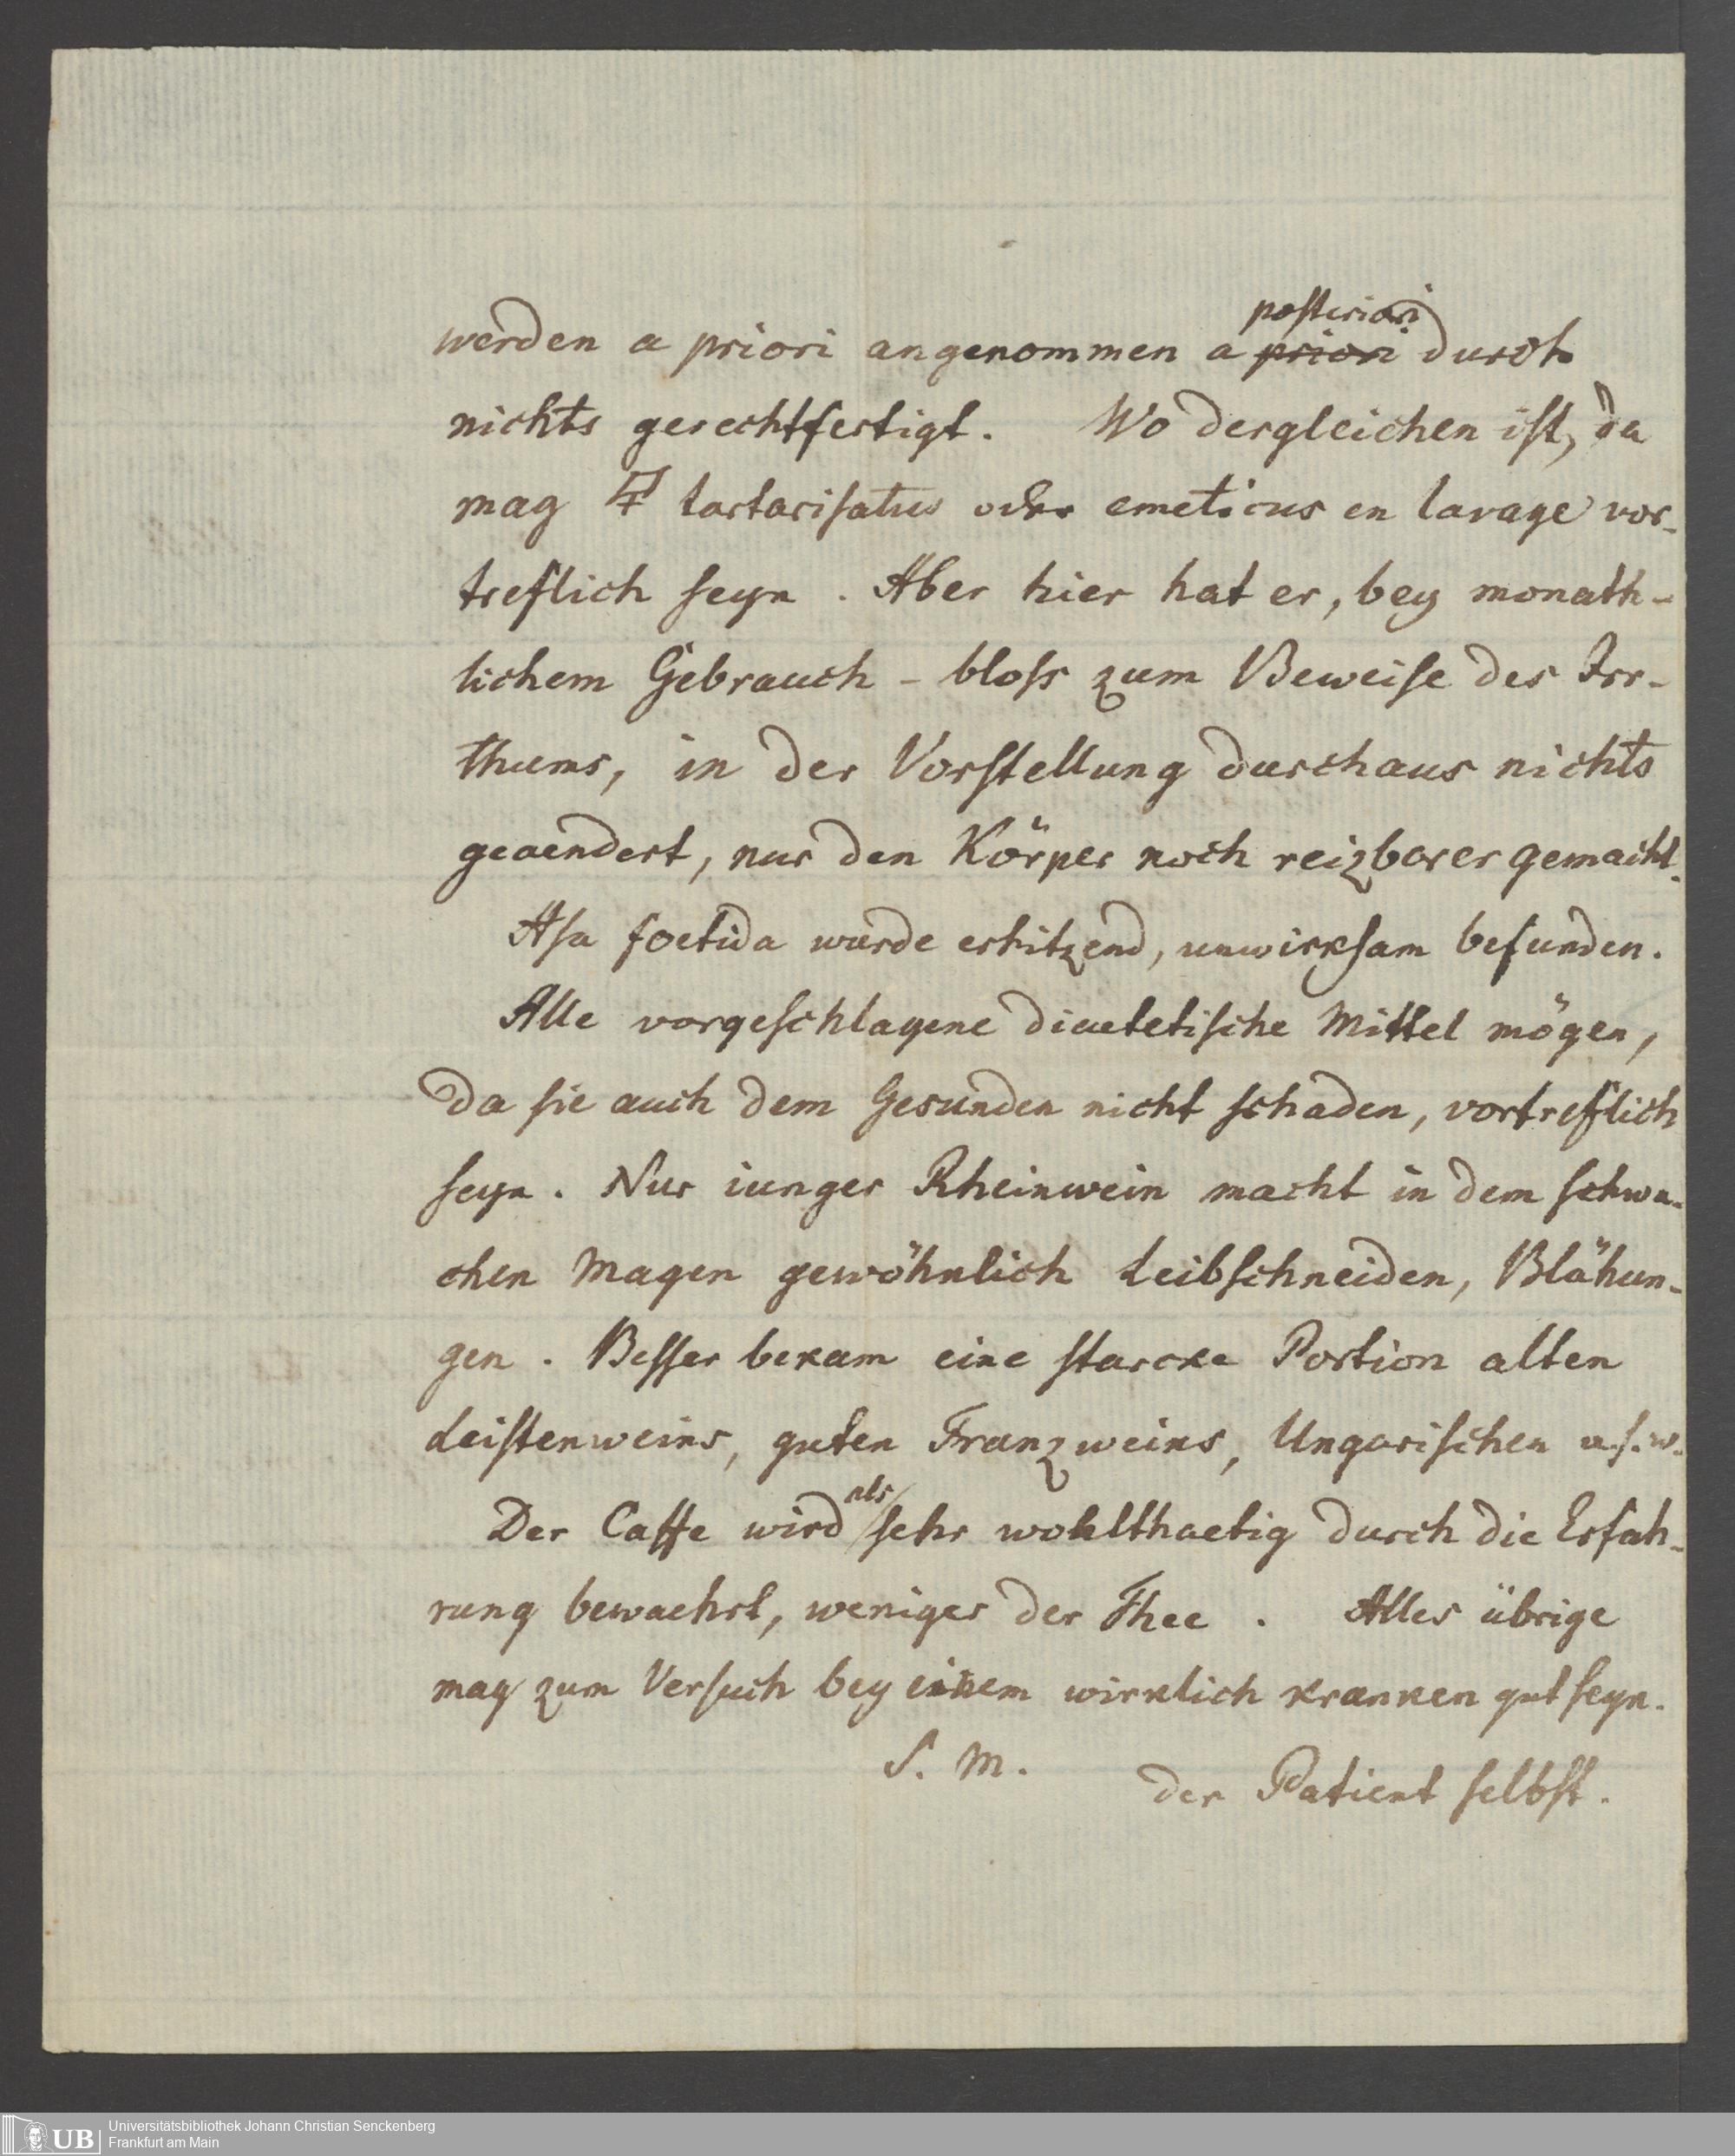 werden a priori angenommen a priori posteriori durch
nichts gerechtfertigt. Wo dergleichen ist, da
mag 🜿 tartarisatus oder emeticus en lavage vor-
treflich seyn. Aber hier hat er, bey monath-
lichem Gebrauch - bloss zum Beweise des Irr-
thums, in der Vorstellung durchaus nichts
geaendert, nur den Körper noch reizbarer gemacht.
Asa foetida wurde erhitzend, unwirksam befunden.
Alle vorgeschlagene diaetetische Mittel mögen,
da sie auch dem Gesunden nicht schaden, vortreflich
seyn. Nur iunger Rheinwein macht in dem schwa-
chen Magen gewöhnlich Leibschneiden, Blähun-
gen. Besser bekam eine starcke Portion alten
Leistenweins, guten Franzweins, Ungarischen u.s.w.
Der Caffe wird als sehr wohlthaetig durch die Erfah-
rung bewaehrt, weniger der Thee. Alles übrige
mag zum Versuch bey einem wirklich kranken gut seyn.
S. M.
der Patient selbst.
UB
Universitätsbibliothek Johann Christian Senckenberg
Frankfurt am Main